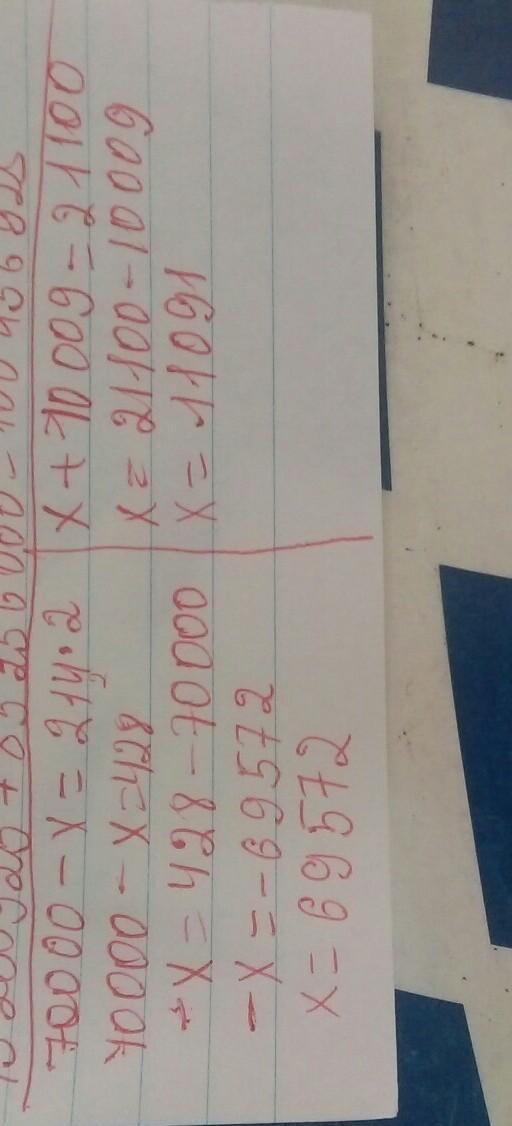 70000 - x = 214 · 2
70000 - x = 428
-x = 428 - 70000
-x = -69572
x = 69572
x + 10 009 = 21100
x = 21100 - 10009
x = 11091